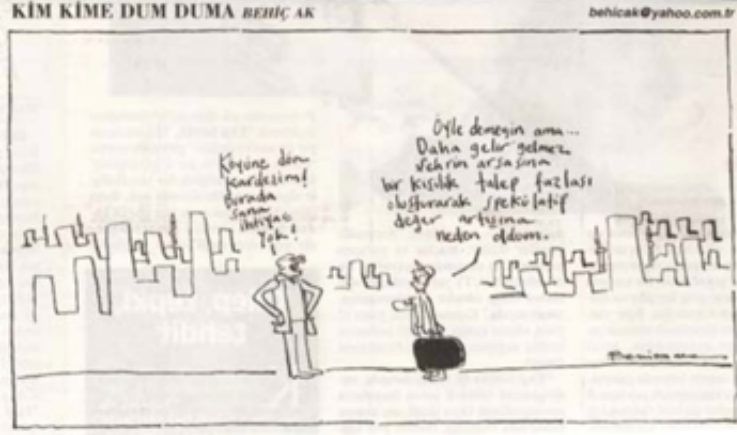 KİM KİME DUM DUMA BEHİÇ AK
behicak@yahoo.com.tr
Köyüne dön
kardeşim!
Burada
sana
ihtiyaç
yok!
Öyle demeyin ama...
Daha gelir gelmez
şehrin arsasına
bir kişilik talep fazlası
oluşturarak spekülatif
değer artışına
neden oldum.